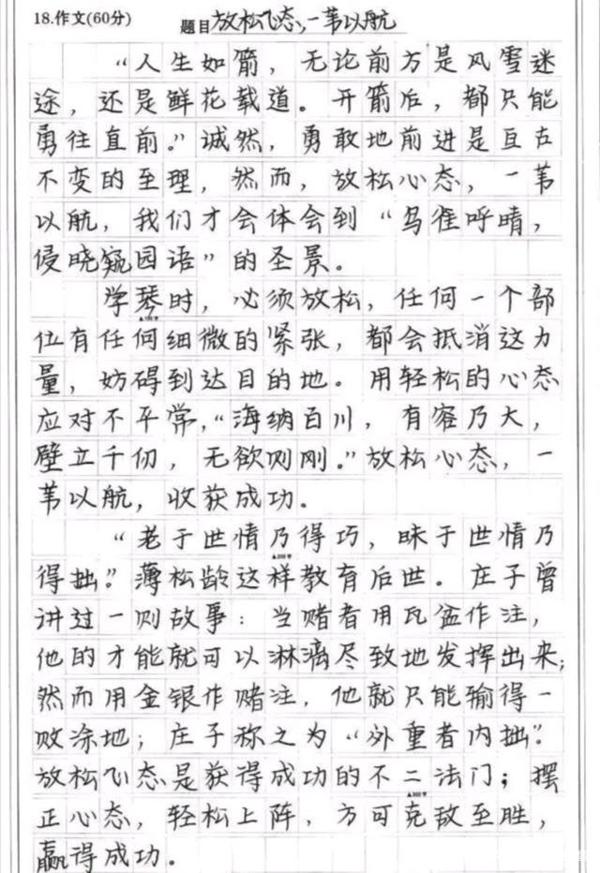 18.作文(60分) 题目放松心态,一苇以航
“人生如箭，无论前方是风雪迷
途，还是鲜花载道。开箭后，都只能
勇往直前。”诚然，勇敢地前进是亘古
不变的至理，然而，放松心态，一苇
以航，我们才会体会到“鸟雀呼晴，
侵晓窥园语”的圣景。
学琴时，必须放松，任何一个部
位有任何细微的紧张，都会抵消这力
量，妨碍到达目的地。用轻松的心态
应对不平常，“海纳百川，有容乃大，
壁立千仞，无欲则刚。”放松心态，一
苇以航，收获成功。
“老于世情乃得巧，昧于世情乃
得拙。”薄松龄这样教育后世。庄子曾
讲过一则故事：当赌者用瓦盆作注，
他的才能就可以淋漓尽致地发挥出来；
然而用金银作赌注，他就只能输得一
败涂地；庄子称之为“外重者内拙”。
放松心态是获得成功的不二法门；摆
正心态，轻松上阵，方可克敌至胜，
赢得成功。